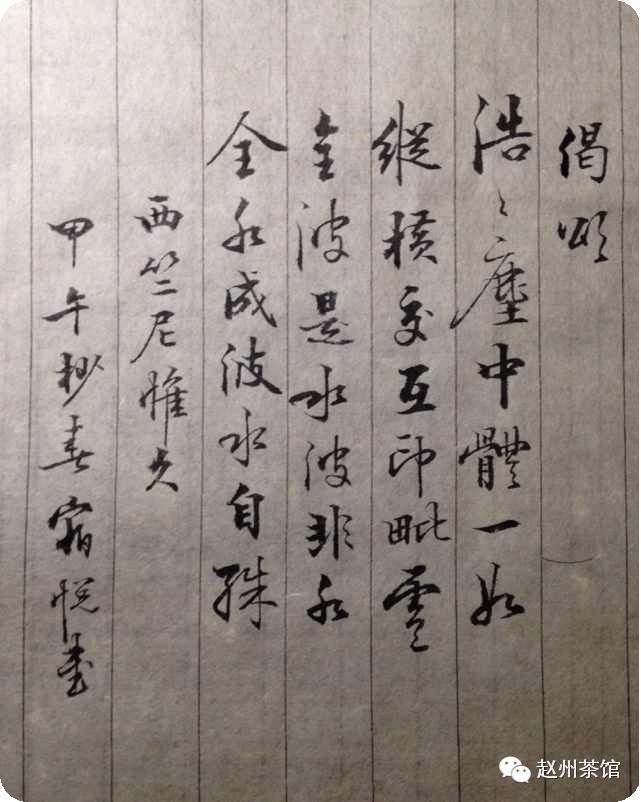 偈頌
浩〻塵中體一如
縱橫交互印毗盧
全波是水波非水
全水成波水自殊
西竺尼惟久
甲午杪春宿悅書
赵州茶馆